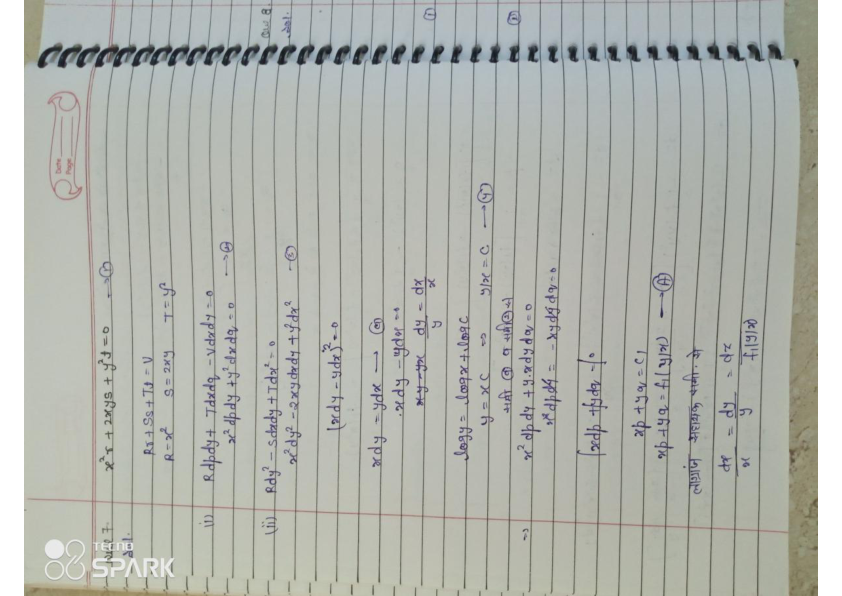 Date
Page
प्रश्न 7. x²r + 2xys + y²t = 0 → ①
हल.
Rr + Ss + Tt = V
R = x² S = 2xy T = y²
i) Rdpdy + Tdxdq - Vdxdy = 0
x²dpdy + y²dxdq = 0 → ②
(ii) Rdy² - Sdxdy + Tdx² = 0
x²dy² - 2xydxdy + y²dx² → ③
(xdy - ydx)² = 0
xdy = ydx →
xdy - ydx = 0
dy/y = dx/x
logy = logx + logC
y = xC ⇒ y/x = C → ④
समी
⇒ x²dpdy + y.xdydq = 0
x²dpdy = -xydydq = 0
∫xdp + ∫ydq = ∫0
xp + yq = C₁
xp + yq = f₁(y/x) → Ⓐ
लाग्रांज सहायक समी. से
dx/x = dy/y = dz/f₁(y/x)
प्रश्न 8.
हल.
①
②
TECNO
SPARK